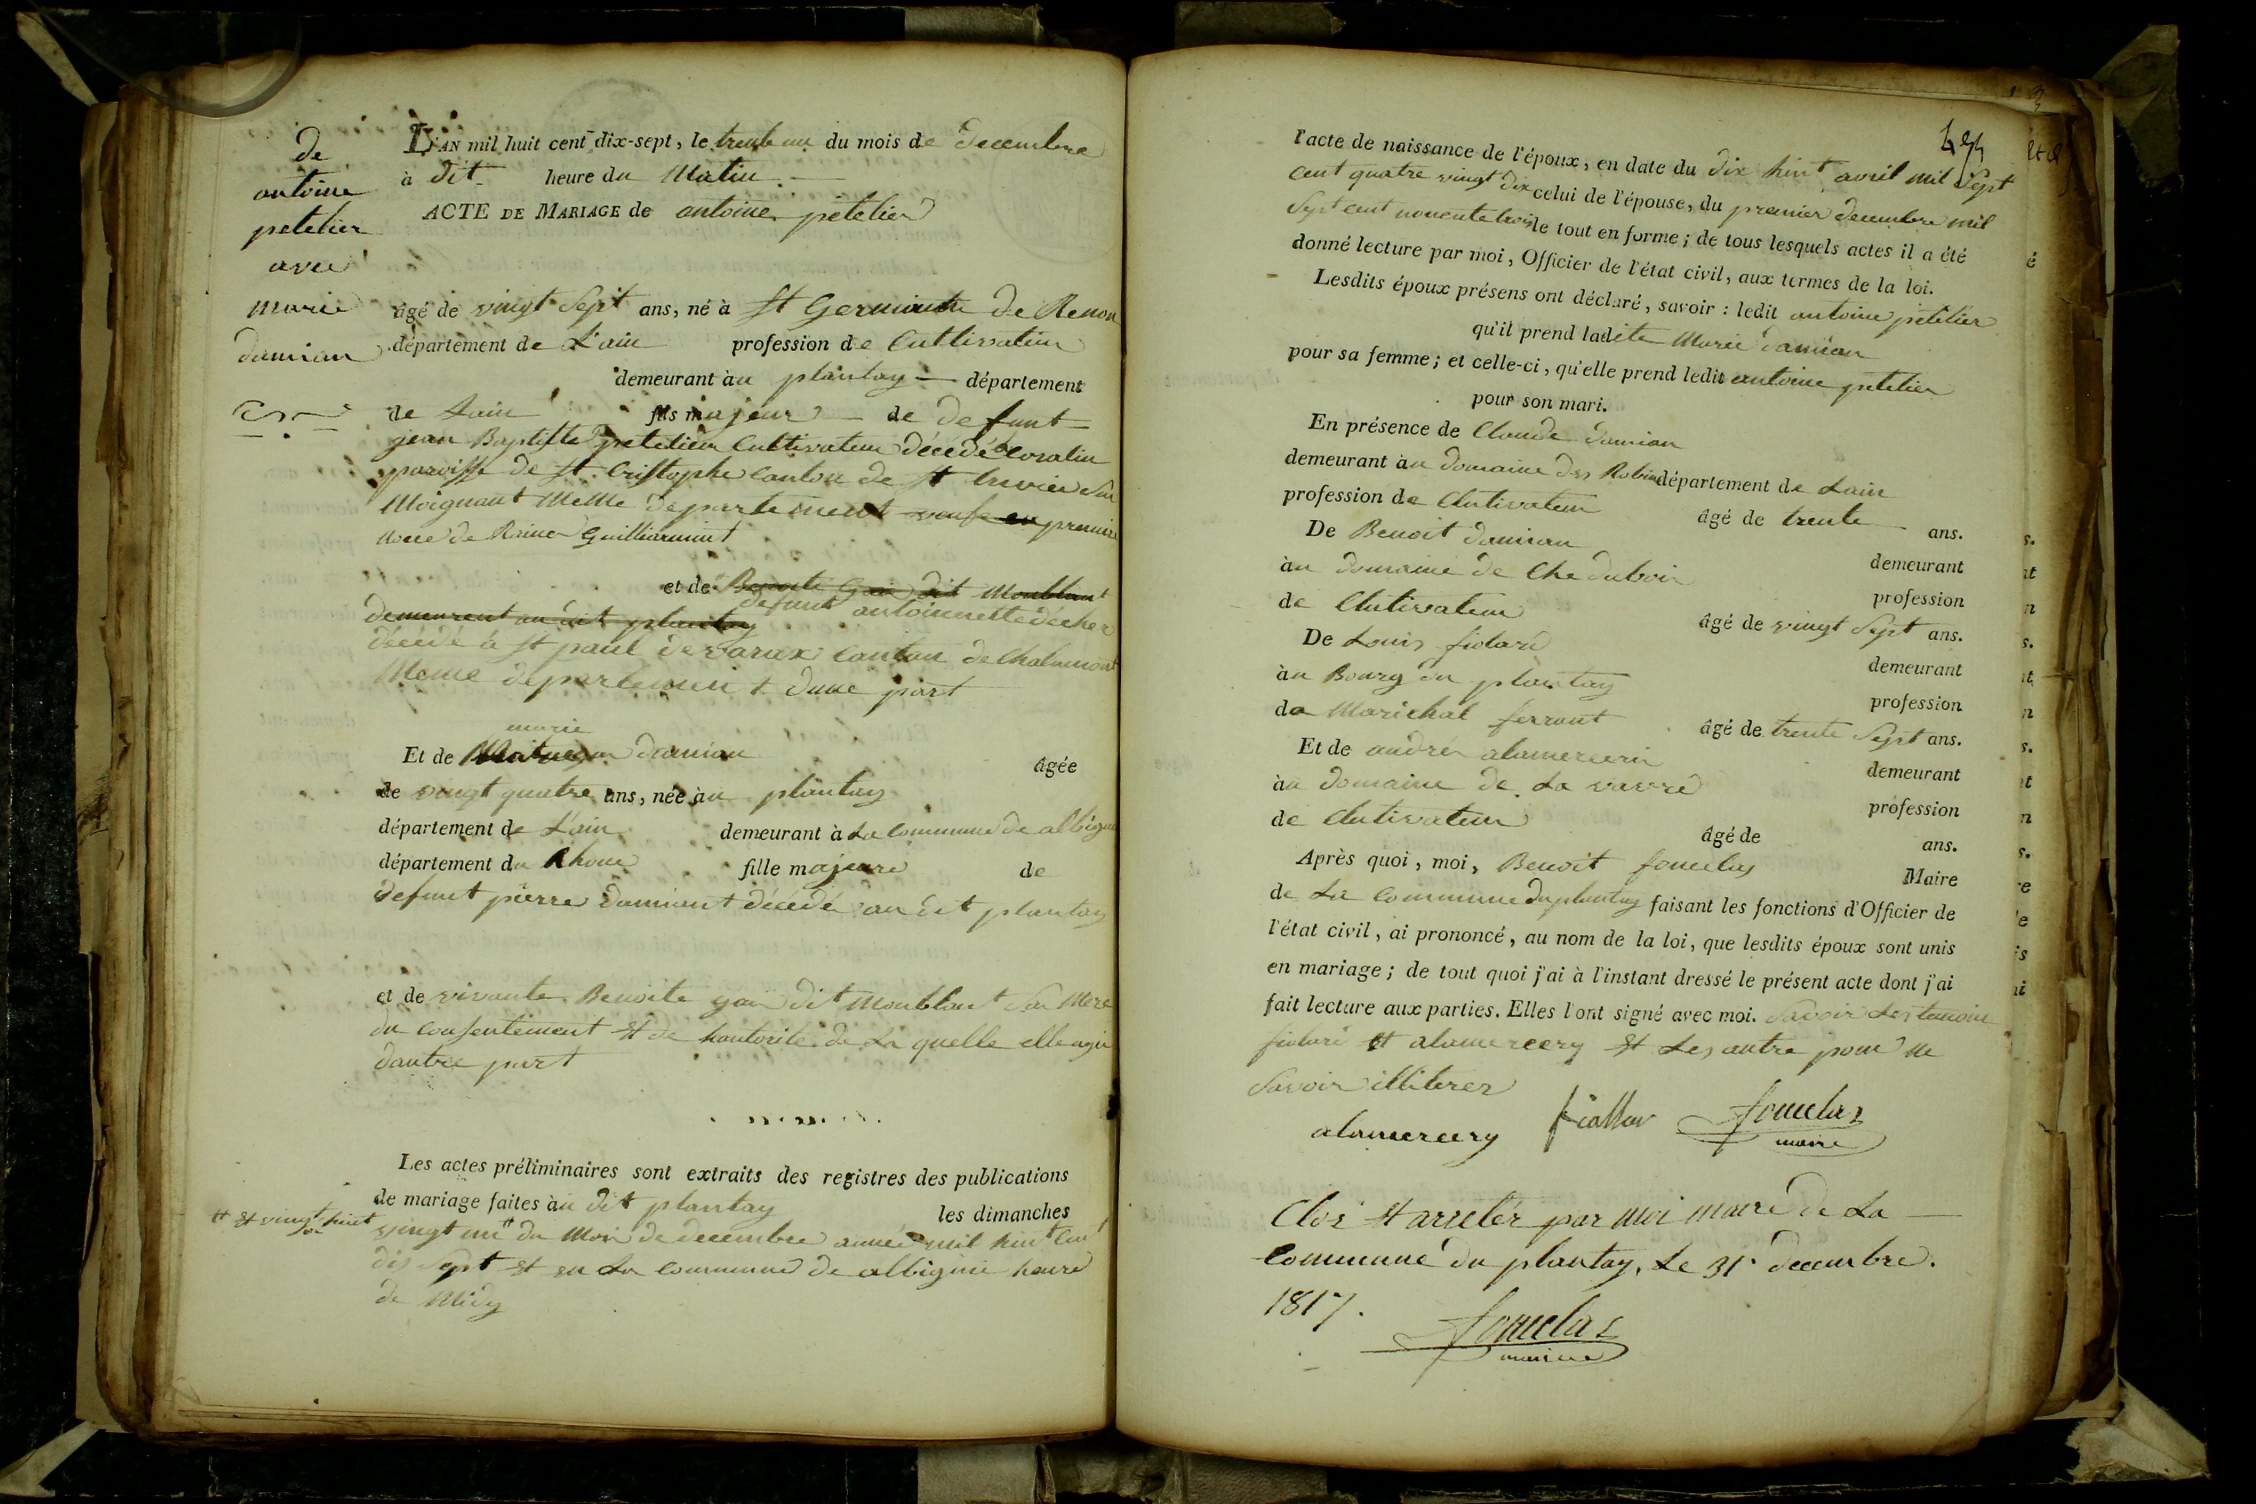 de
antoine
petelier
avec
marie
damian
L'AN mil huit cent dix-sept, le trente un du mois de decembre
à dit heure du Matin
ACTE DE MARIAGE de antoine petelier
âgé de vingt Sept ans, né à St Germain de Renon
département de L'ain profession de Cultivateur
demeurant àu plantay département
de Lain fils majeur de defunt
jean Baptiste petelier Cultivateur décedé
paroisse de St Cristophe Canton de St trivier Sur
Moignant Meme departement veuf en premire
noce de Guilliarmint
et de Benoite Goin dit Monblant
defunt antoinette décher
demeurent au dit plantay
décédé à St paul de varax Canton de Chalamont
Meme departement d'une part
marie
Et de damian âgée
de vingt quatre ans, née àu plantay
département de L'ain demeurant à La Commune de albigni
département du Rhone fille majeure de
defunt pierre Damiant décédé au dit plantay
et de vivante Benoite goin dit Monblant Sa Mere
du Consentement et de hautorité de La quelle elle agit
dautre part
Les actes préliminaires sont extraits des registres des publications
de mariage faites àu dit plantay les dimanches
# et vingt huit
vingt un # du Moi de decembre année mil huit Cent
dis Sept et en La Commune de albignie heure
de Midy
l'acte de naissance de l'époux, en date du dix huit avril mil Sept
cent quatre vingt dix celui de l'épouse, du premier decembre mil
Sept cent nonente trois le tout en forme; de tous lesquels actes il a été
donné lecture par moi, Officier de l'état civil, aux termes de la loi.
Lesdits époux présens ont déclaré, savoir: ledit antoine petelier
qu'il prend ladite Marie damian
pour sa femme; et celle-ci, qu'elle prend ledit antoine petelier
pour son mari.
En présence de Claude damian
demeurant àu domaine des Robin département de Lain
profession de Cutivateur âgé de trente ans.
De Benoit damian demeurant
àu domaine de Che dubois profession
de Cutivateur âgé de vingt Sept ans.
De Louis fiolare demeurant
àu Bourg du plantay profession
de Marichal ferrant âgé de trente Sept ans.
Et de andrér alamercerie demeurant
àu domaine de La vavre profession
de Cutivateur âgé de ans.
Après quoi, moi, Benoit fouclas Maire
de La Commune du plantay faisant les fonctions d'Officier de
l'état civil, ai prononcé, au nom de la loi, que lesdits époux sont unis
en mariage; de tout quoi j'ai à l'instant dressé le présent acte dont j'ai
fait lecture aux parties. Elles l'ont signé avec moi. Savoir Les temoin
fiolare et alamercery et Les autre pour ne
Savoir illiterer
alamercery fouclas
maire
Clos et arreter par moi maire de La
Commune du plantay, Le 31. decembre.
1817.
fouclas
maire